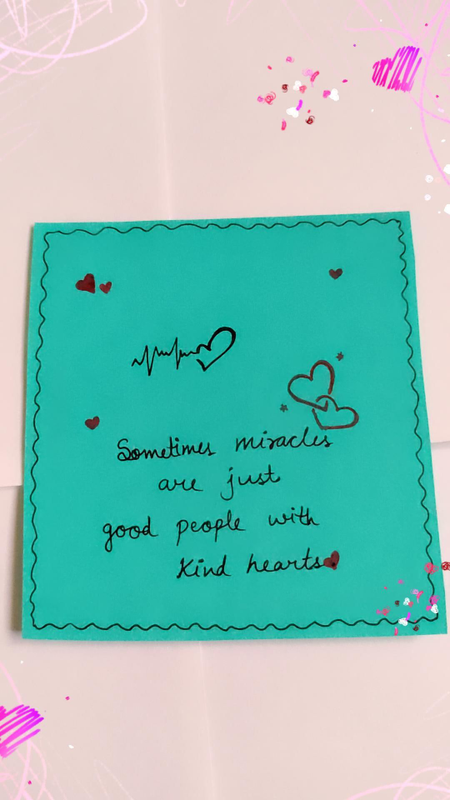 Sometimes miracles
are just
good people with
kind hearts